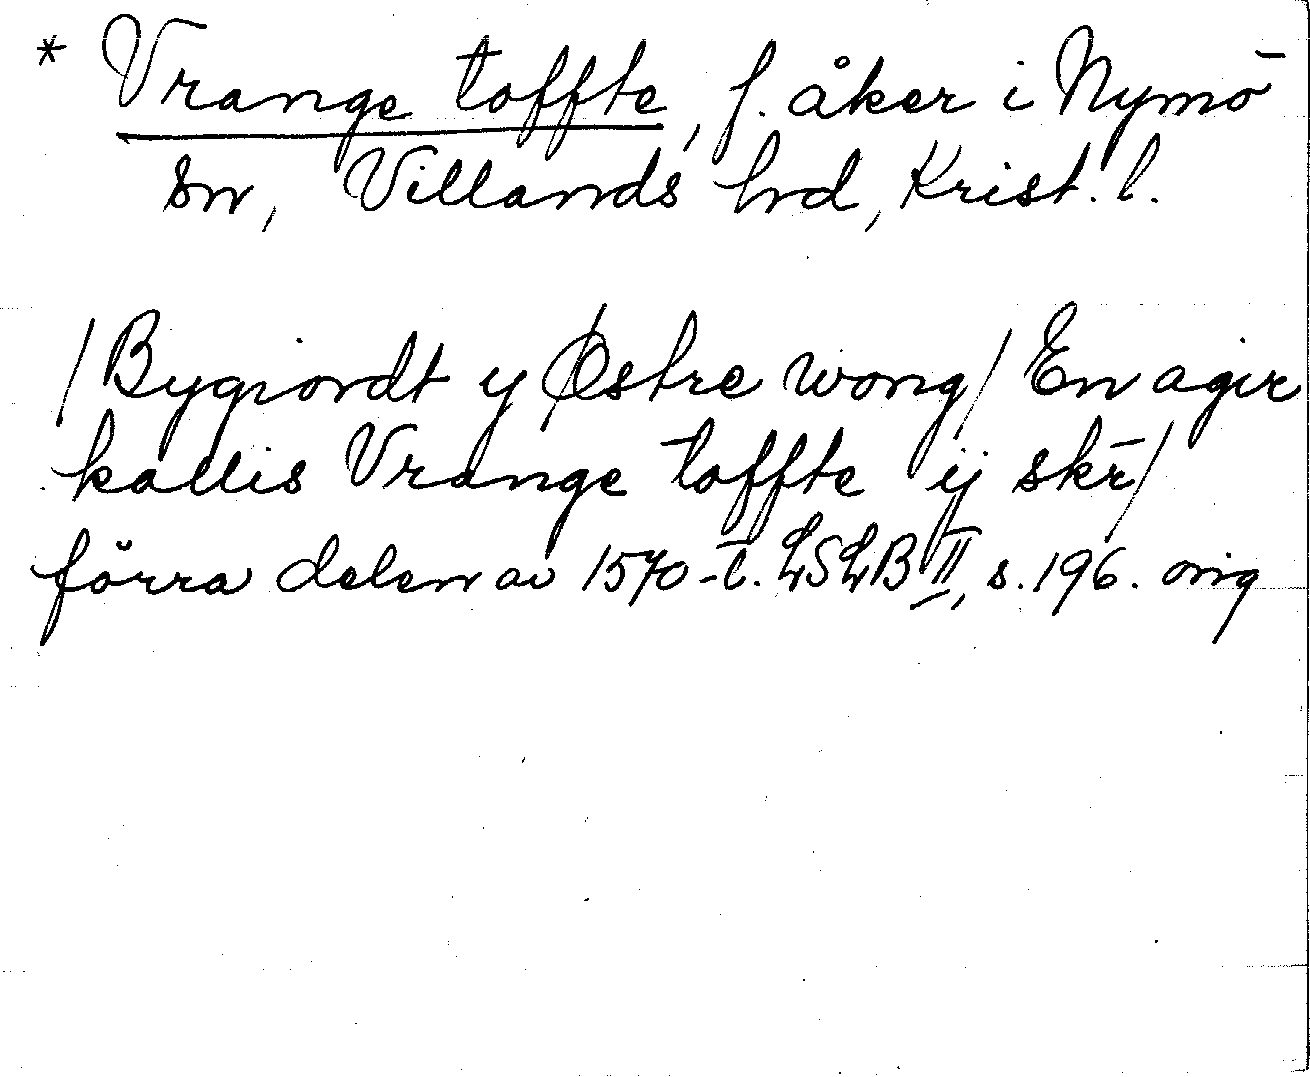 * Vrange toffte, f. åker i Nymö
sn, Villands hd, Krist. l.
/Bygiordt y Østre wong/ En ager
kallis Vrange toffte ij skr̄/
förra delen av 1570-t. LSLB II, s. 196. orig